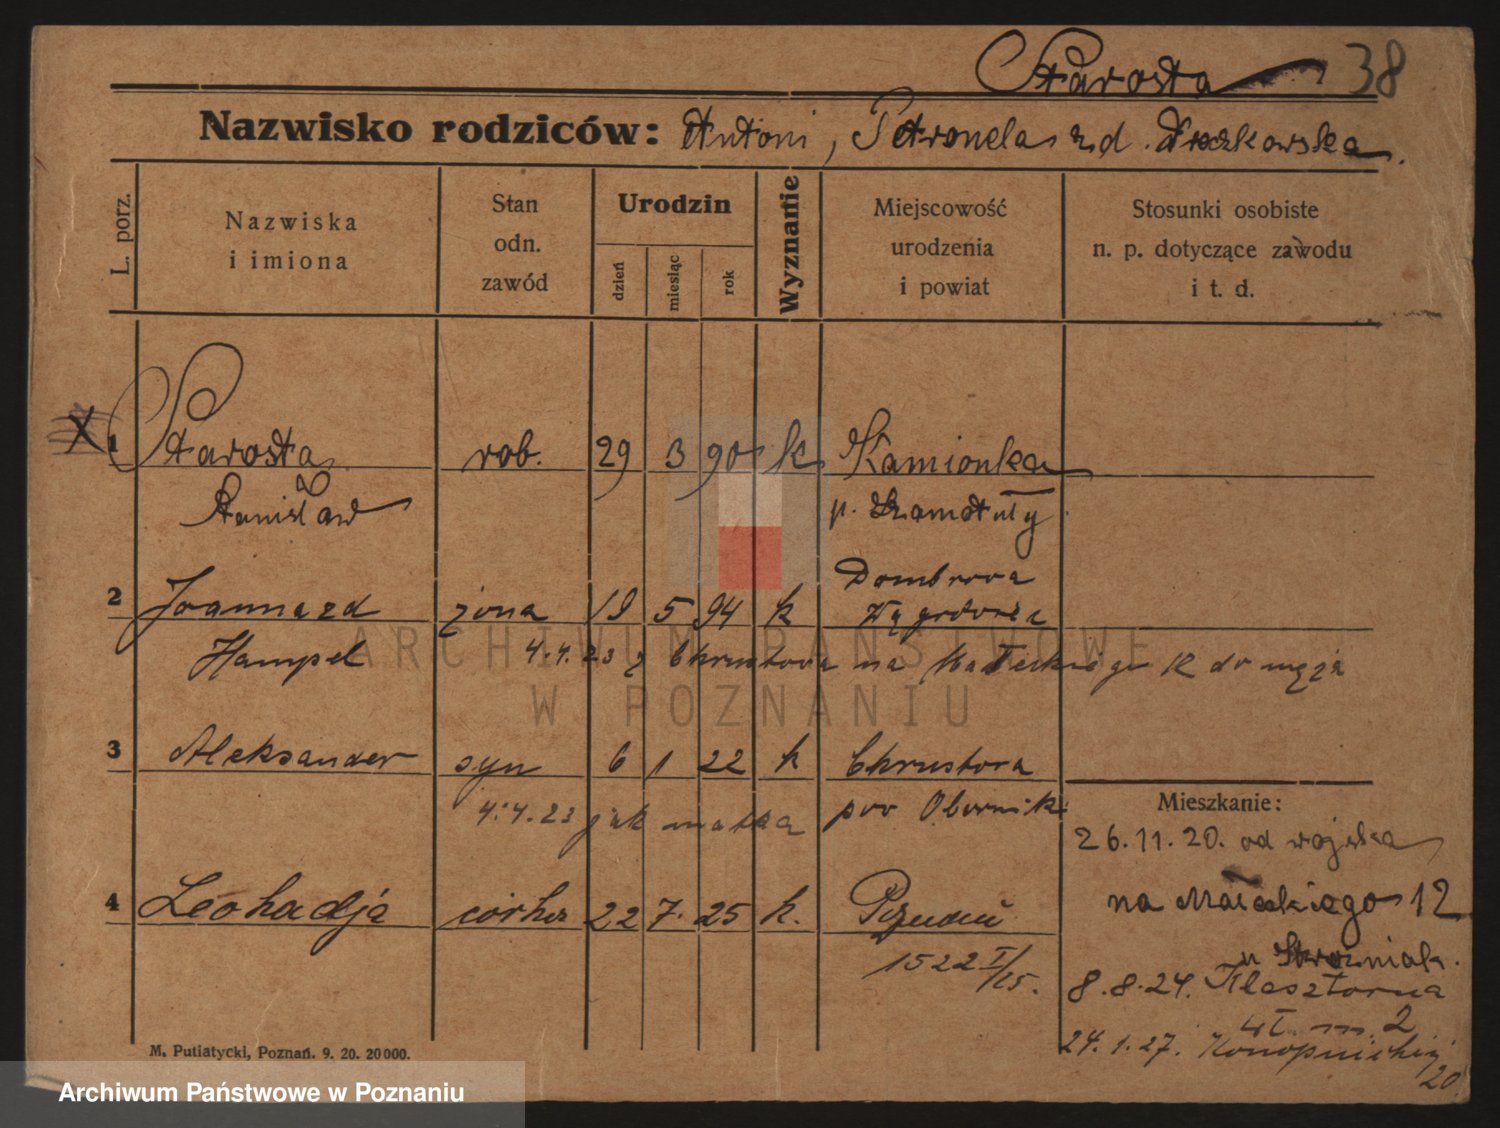 Starosta 38
Nazwisko rodziców: Antoni, Petronela zd.
L. porz.
Nazwiska
i imiona
Stan
odn.
zawód
Urodzin
dzień
miesiąc
rok
Wyznanie
Miejscowość
urodzenia
i powiat
Stosunki osobiste
n. p. dotyczące zawodu
i t. d.
X 1 Starosta rob. 29 3 90 k Kamionka
Stanisław p. Szamotuły
Dombrova
2 Joanna zd żona 19 5 94 k Wągrówż.
Hampel 4.4.23 z Chrustova na Małeckiego 12 do męża
3 Aleksander syn 6 1 22 k Chrustova
4.4.23 jak matka pow Oborniki
Mieszkanie:
26.11.20. od wojska
4 Leokadja córka 22 7. 25 k. Poznań
na Małeckiego 12
1522 I/25.
u Stroźniak.
8.8.24. Klasztorna
m. 2
24.1.27. Konopnickiej
20
M. Putiatycki, Poznań. 9. 20. 20000.
ARCHIWUM PAŃSTWOWE
W POZNANIU
Archiwum Państwowe w Poznaniu